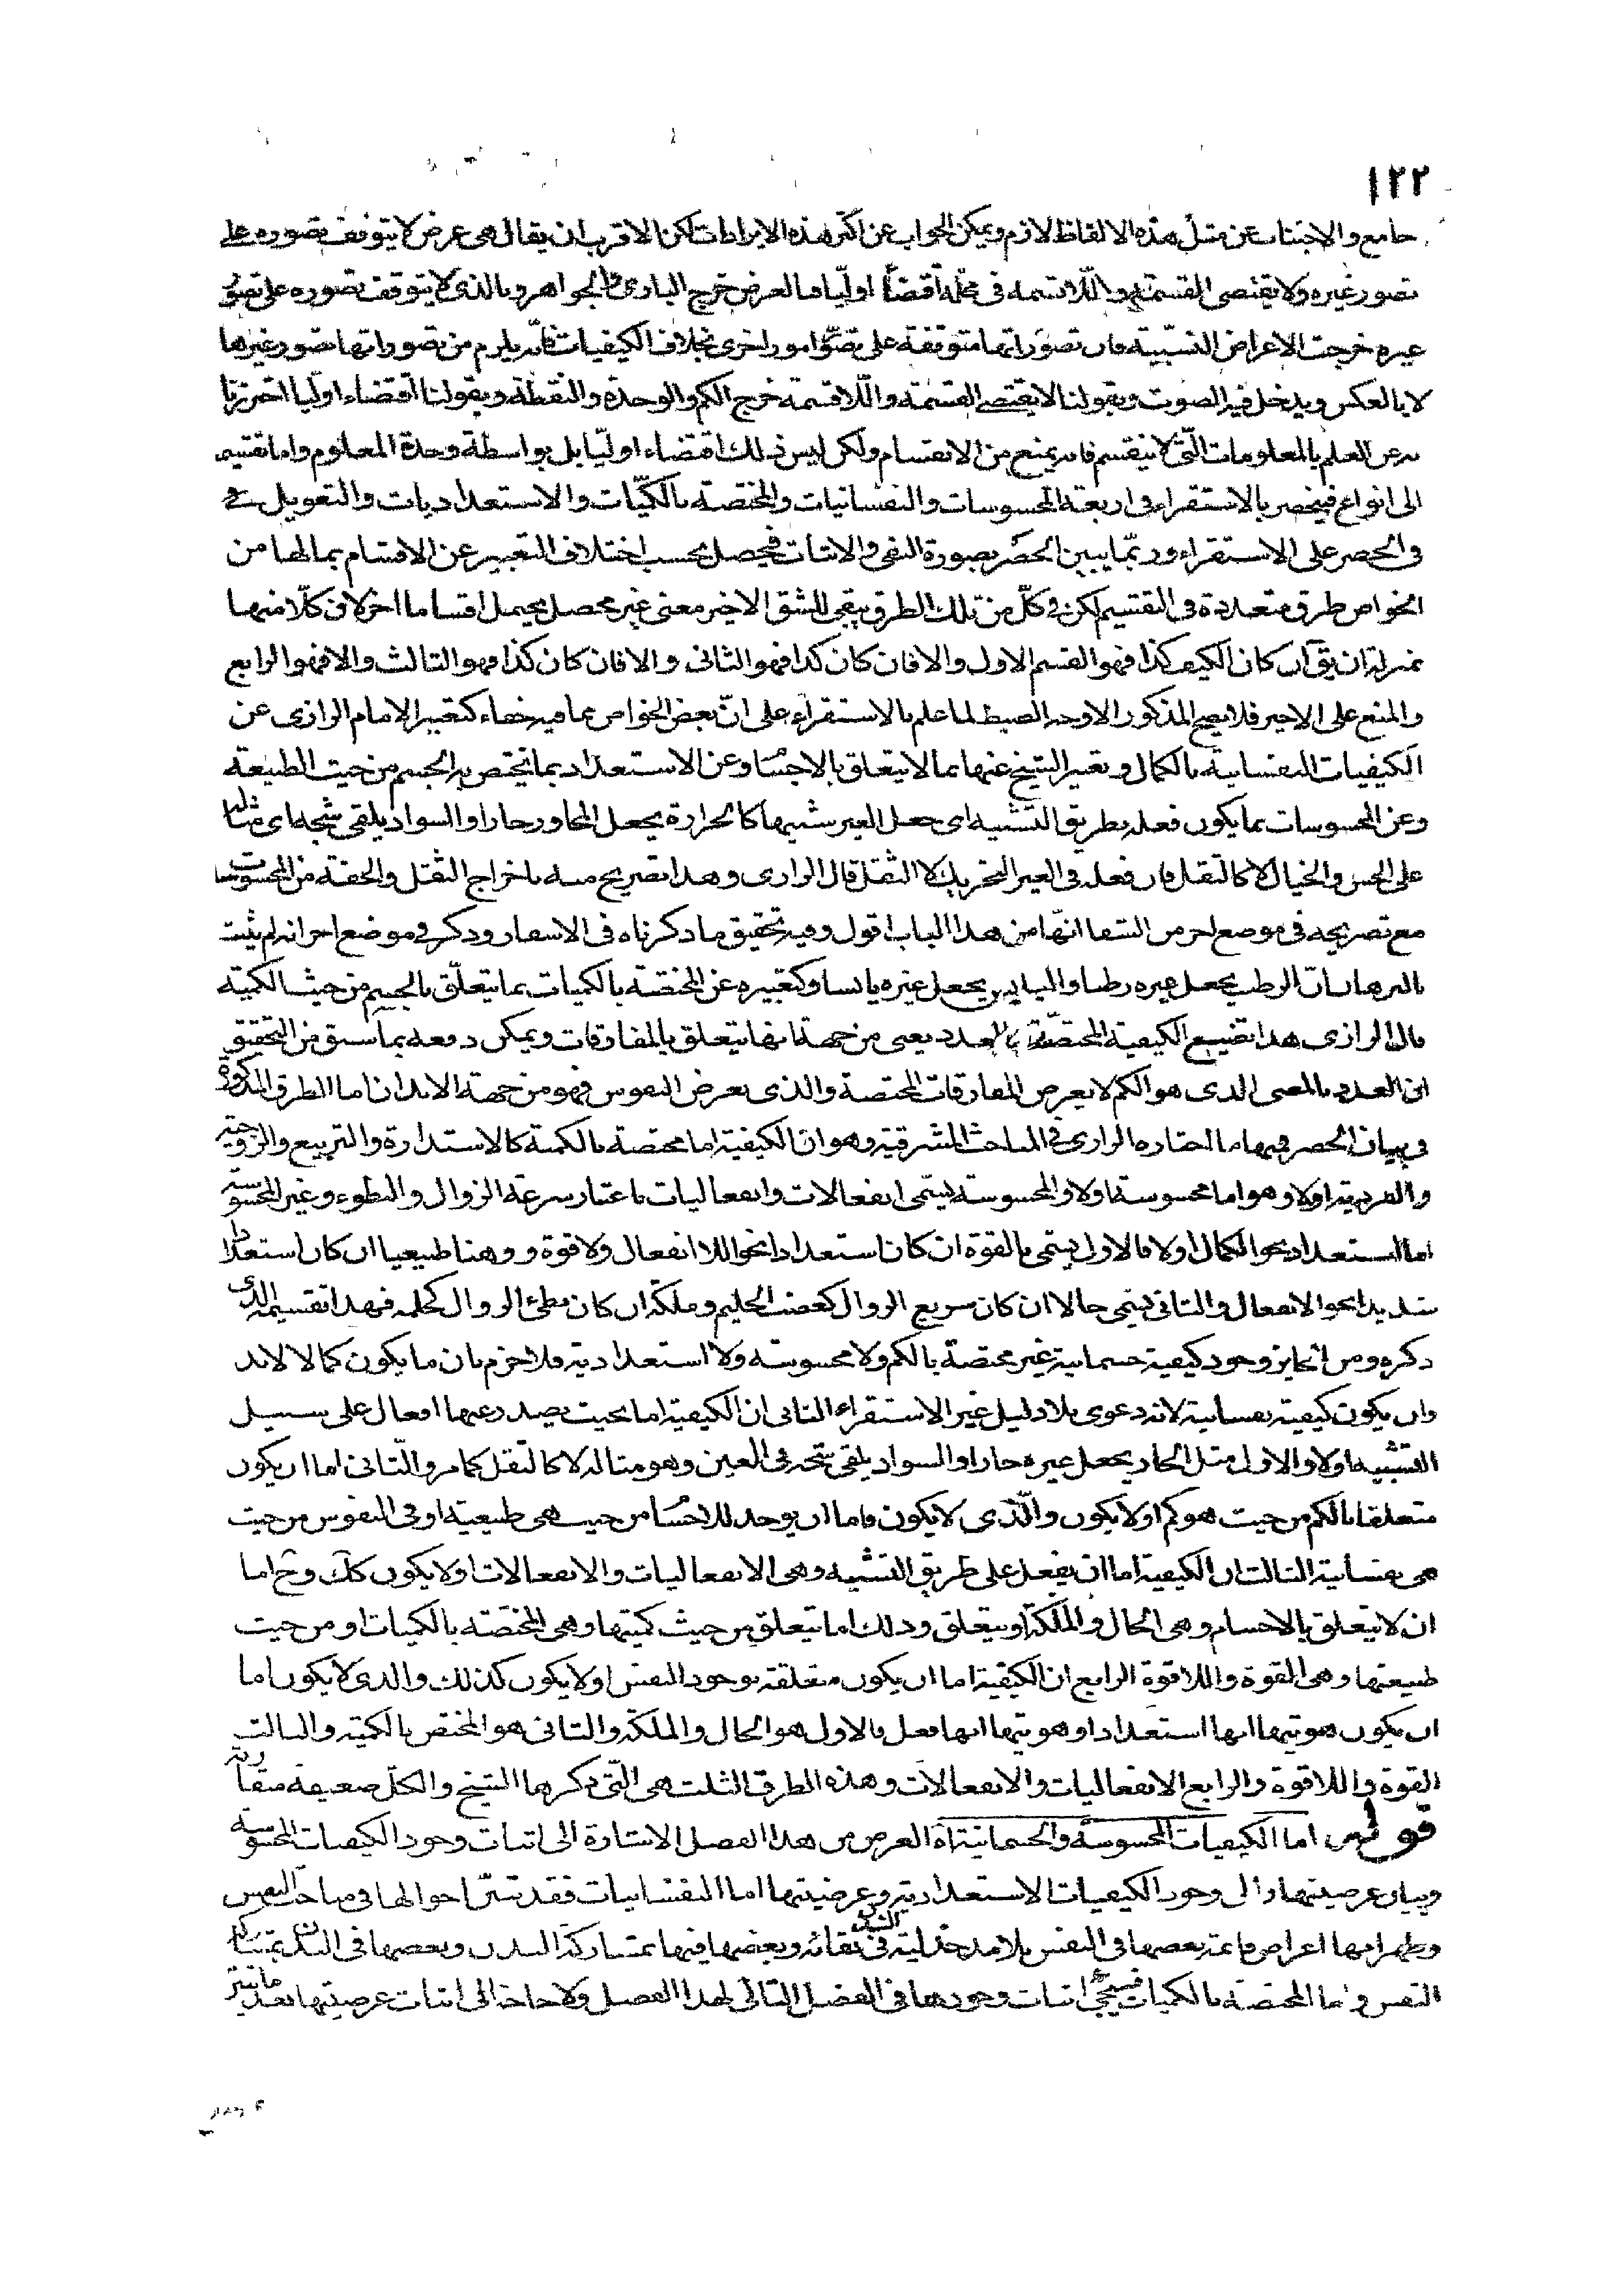 ١٢٢
جامع والاجتناب عن مثل هذه الالفاظ لازم ويمكن الجواب عن اكثر هذه الايرادات لكن الاقرب ان يقال هى عرض لا يتوقف تصوره على
تصور غيره ولا يقتضى القسمة واللاقسمة فى محله اقتضاء اوليا فبالعرض خرج البارى والجواهر وبالذى لا يتوقف تصوره على تصور
غيره خرجت الاعراض النسبية فان تصوراتها متوقفة على تصور امور اخرى بخلاف الكيفيات فانه يلزم من تصوراتها تصور غيرها
لا بالعكس ويدخل فيه الصوت وبقولنا لا يقتضى القسمة واللاقسمة خرج الكم والوحدة والنقطة وبقولنا اقتضاء اوليا احترزنا
به عن العلم بالمعلومات التى لا ينقسم فانه يمنع من الانقسام ولكن ليس ذلك اقتضاء اوليا بل بواسطة وحدة المعلوم واما تقسيمه
الى انواع فينحصر بالاستقراء فى اربعة المحسوسات والنفسانيات والمختصة بالكميات والاستعداديات والتعويل فى
فى الحصر على الاستقراء وربما يبين الحصر بصورة النفى والاثبات فيحصل بحسب اختلاف التعبير عن الاقسام بما لها من
الخواص طرق متعددة فى التقسيم لكن فى كل من تلك الطرق يبقى للشق الاخير معنى غير محصل يحتمل اقساما اخر لان كلا منها
بمنزلة ان يق ان كان الكيف كذا فهو القسم الاول والا فان كان كذا فهو الثانى والا فان كان كذا فهو الثالث والا فهو الرابع
والمنع على الاخير فلا يصح المذكور الا وجه الضبط لما علم بالاستقراء على ان بعض الخواص مما فيه خفاء كتعبير الامام الرازى عن
الكيفيات النفسانية بالكمال وتعبير الشيخ عنها بما لا يتعلق بالاجسام وعن الاستعداد بما يختص به الجسم من حيث الطبيعة
وعن المحسوسات بما يكون فعله بطريق التشبيه اى جعل الغير شبيها كالحرارة يجعل المجاور حارا والسواد يلقى شبحه اى مثاله
على الحس والخيال لا كالثقل فان فعله فى الغير التحريك لا الثقل قال الرازى وهذا تصريح منه باخراج الثقل والخفة من المحسوسات
مع تصريحه فى موضع اخر من الشفا انها من هذا الباب اقول وفيه تحقيق ما ذكرناه فى الاسفار وذكر فى موضع اخر انه لم يثبت
بالبرهان ان الرطب يجعل غيره رطبا واليابس يجعل غيره يابسا وكتعبيره عن المختصة بالكميات بما يتعلق بالجسم من حيث الكمية
قال الرازى هذا تضييع الكيفية المختصة بالعدد يعنى من جهة انها يتعلق بالمفارقات ويمكن دفعه بما سبق من التحقيق
ان العدد بالمعنى الذى هو الكم لا يعرض المفارقات المختصة والذى يعرض النفوس فهو من جهة الابدان اما الطرق المذكورة
فى بيان الحصر فمنها ما اختاره الرازى فى المباحث المشرقية وهو ان الكيفية اما مختصة بالكمية كالاستدارة والتربيع والزوجية
والفردية اولا وهو اما محسوسة اولا والمحسوسة يسمى انفعالات وانفعاليات باعتبار سرعة الزوال والبطوء وغير المحسوسة
اما استعداد نحو الكمال اولا فالاول يسمى بالقوة ان كان استعدادا نحو اللاانفعال ولا قوة ووهنا طبيعيا ان كان استعدادا
شديدا نحو الانفعال والثانى يسمى حالا ان كان سريع الزوال كغضب الحليم وملكة ان كان بطئ الزوال كحلمه فهذا تقسيمه الذى
ذكره ومن الجايز وجود كيفية جسمانية غير مختصة بالكم ولا محسوسة ولا استعدادية فلا جزم بان ما يكون كمالا لابد
وان يكون كيفية نفسانية لانه دعوى بلا دليل غير الاستقراء الثانى ان الكيفية اما بحيث يصدر عنها افعال على سبيل
التشبيه اولا والاول مثل الحار يجعل غيره حارا والسواد يلقى شبحه فى العين وهو مثاله لا كالثقل كما مر والثانى اما ان يكون
متعلقا بالكم من حيث هو كم اولا يكون والذى لا يكون فاما ان يوجد للاجسام من حيث هى طبيعية او فى النفوس من حيث
هى نفسانية الثالث ان الكيفية اما ان يفعل على طريق التشبيه وهى الانفعاليات والانفعالات اولا يكون كك وح اما
ان لا يتعلق بالاجسام وهى الحال والملكة او يتعلق وذلك اما يتعلق من حيث كميتها وهى المختصة بالكميات او من حيث
طبيعتها وهى القوة واللاقوة الرابع ان الكيفية اما ان يكون متعلقة بوجود النفس اولا يكون كذلك والذى لا يكون اما
ان يكون هويتها انها استعداد او هويتها انها فعل فالاول هو الحال والملكة والثانى هو المختص بالكمية والثالث
القوة واللاقوة والرابع الانفعاليات والانفعالات وهذه الطرق الثلث هى التى ذكرها الشيخ والكل ضعيفة متقاربة
قوله اما الكيفيات المحسوسة والجسمانية اه الغرض من هذا الفصل الاشارة الى اثبات وجود الكيفيات المحسوسة
وبيان عرضيتها والى وجود الكيفيات الاستعدادية وعرضيتها اما النفسانيات فقد تبين احوالها فى مباحث النفس
وظهر انها اعراض قائمة بعضها فى النفس بلا مدخلية البدن فى بقائه وبعضها فيها بمشاركة البدن وبعضها فى البدن بمشاركة
النفس واما المختصة بالكميات فسيجئ اثبات وجودها فى الفصل التالى لهذا الفصل ولا حاجة الى اثبات عرضيتها بعد ما تبين